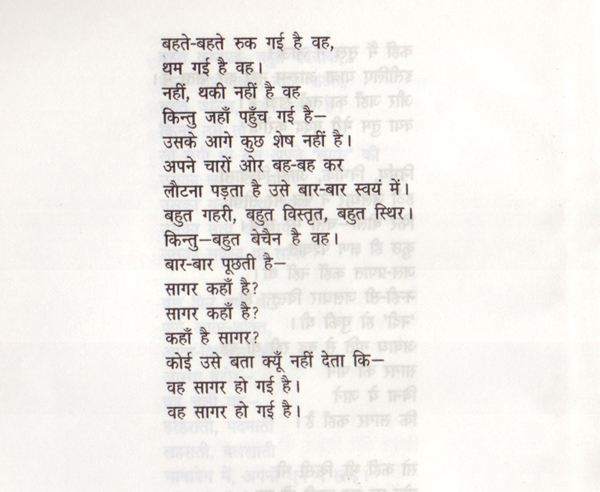 बहते-बहते रुक गई है वह,
थम गई है वह।
नहीं, थकी नहीं है वह
किन्तु जहाँ पहुँच गई है–
उसके आगे कुछ शेष नहीं है।
अपने चारों ओर बह-बह कर
लौटना पड़ता है उसे बार-बार स्वयं में।
बहुत गहरी, बहुत विस्तृत, बहुत स्थिर।
किन्तु–बहुत बेचैन है वह।
बार-बार पूछती है–
सागर कहाँ है?
सागर कहाँ है?
कहाँ है सागर?
कोई उसे बता क्यूँ नहीं देता कि–
वह सागर हो गई है।
वह सागर हो गई है।